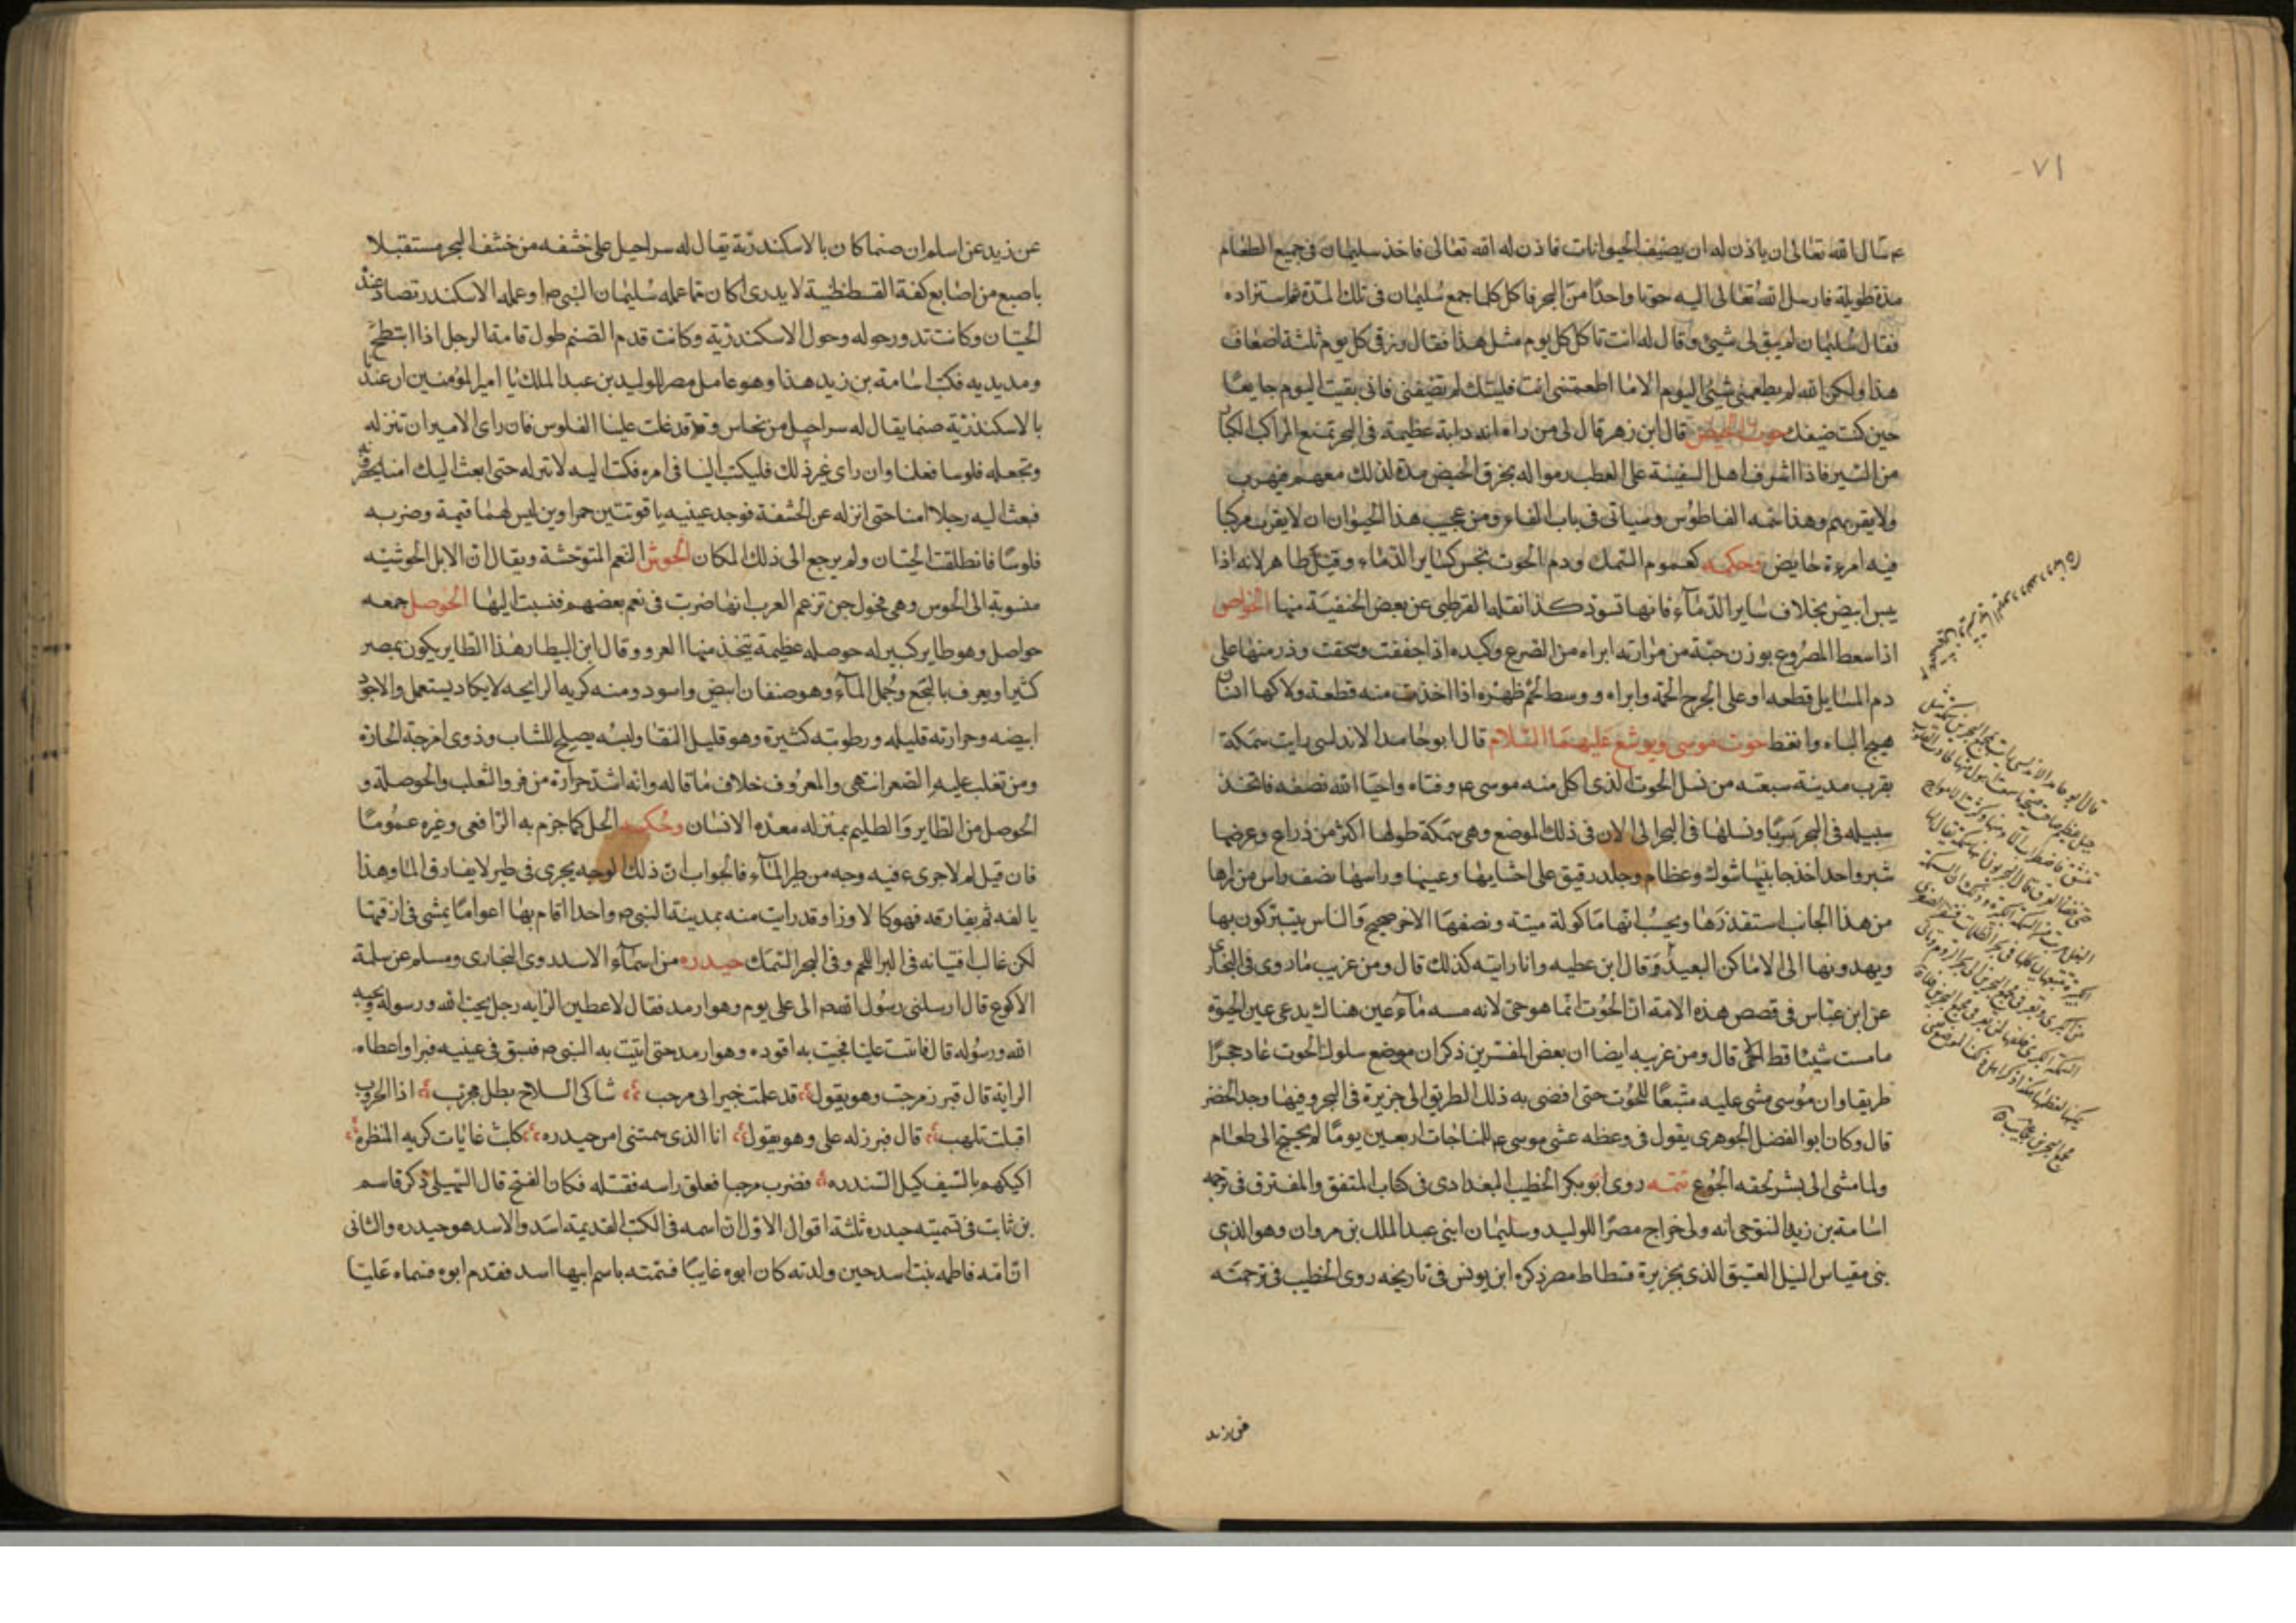 ٧١
ع سال الله تعالى ان ياذن له ان يضيف الحيوانات فاذن له الله تعالى فاخذ سليمان فى جميع الطعام
مدة طويلة فارسل الله تعالى اليه حوتا واحدا من البحر فاكل كلما جمع سليمان فى تلك المدة ثم استزاده
فقال سليمان لم يبق لى شيئ وقال له انت تاكل كل يوم مثل هذا فقال رزقى كل يوم ثلثة اضعاف
هذا ولكن الله لم يطعمنى شيئ اليوم الا ما اطعمتنى انت فليتك لم تضفنى فانى بقيت اليوم جايعا
حين كنت ضيفك حوت الحيض قال ابن زهر قال لى من راه انه دابة عظيمة فى البحر تمنع المراكب الكبار
من السير فاذا اشرف اهل السفينة على العطب رموا له بخرق الحيض مدة لذلك معهم فيهرب
ولا يقربهم وهذا اسمه الفاطوس وسياتى فى باب الفاء ومن عجيب هذا الحيوان ان لا يقرب مركبا
فيه امرءة حايض وحكمه كعموم السمك ودم الحوت نجس كساير الدماء وقيل طاهر لانه اذا
يبس ابيض بخلاف ساير الدماء فانها تسود كذا نقله القرطبى عن بعض الحنفية منها الخواص
اذا سعط المصروع بوزن حبة من مرارته ابراه من الصرع وكبده اذا جففت وسحقت وذر منها على
دم المسايل قطعه او على الجرح الحمه وابراه ووسط لحم ظهره اذا اخذت منه قطعة ولاكها انسان
هيج الباه وانعظ حوت موسى ويوشع عليهما السلام قال ابو حامد الاندلسى رايت سمكة
بقرب مدينة سبتة من نسل الحوت الذى اكل منه موسى ع وفتاه واحيا الله نصفه فاتخذ
سبيله فى البحر سربا ونسلها فى البحر الى الان فى ذلك الموضع وهى سمكة طولها اكثر من ذراع وعرضها
شبر واحد اخذ جانبيها شوك وعظام وجلد رقيق على احشايها وعينها وراسها نصف راس من راها
من هذا الجانب استقذرها ويحسب انها ماكولة ميتة ونصفها الاخر صحيح والناس يتبركون بها
ويهدونها الى الاماكن البعيد وقال ابن عطيه وانا رايته كذلك قال ومن غريب ما روى فى البخارى
عن ابن عباس فى قصص هذه الامة ان الحوت انما هو حى لانه مسه ماء عين هناك يدعى عين الحيوة
ما مست شيئا قط الا حى قال ومن غريبه ايضا ان بعض المفسرين ذكر ان موضع سلوك الحوت عاد حجرا
طريقا وان موسى مشى عليه متبعا للحوت حتى افضى به ذلك الطريق الى جزيرة فى البحر وفيها وجد الخضر
قال وكان ابو الفضل الجوهرى يقول فى وعظه عشى موسى ع للمناجات اربعين يوما لم يحتج الى طعام
ولما مشى الى بشر لحقه الجوع تتمه روى ابو بكر الخطيب البغدادى فى كتاب المتفق والمفترق فى ترجمه
اسامة بن زيد التنوخى انه ولى خراج مصر للوليد وسليمان ابنى عبد الملك بن مروان وهو الذى
بنى مقياس النيل العتيق الذى بجزيرة فسطاط مصر ذكره ابن يونس فى تاريخه روى الخطيب فى ترجمته
عن زيد
عن زيد عن اسلم ان صنما كان بالاسكندرية يقال له سراحيل على خشفه من خشف البحر مستقبلا
باصبع من اصابع كفه القسطنطنية لا يدرى اكان مما عمله سليمان النبى ص او عمله الاسكندر تصاد عنده
الحيتان وكانت تدور حوله وحول الاسكندرية وكانت قدم الصنم طول قامة الرجل اذا انبطح
ومد يديه فكتب اسامة بن زيد هذا وهو عامل مصر للوليد بن عبد الملك يا امير المؤمنين ان عندنا
بالاسكندرية صنما يقال له سراحيل من نحاس وقد غلت علينا الفلوس فان راى الامير ان تنزله
وتجعله فلوسا فعلنا وان راى غير ذلك فليكتب الينا فى امره فكتب اليه لا تنزله حتى ابعث اليك امنا يحضرونه
فبعث اليه رجلا امنا حتى انزله عن الخشفة فوجد عينيه ياقوتتين حمراوين ليس لهما قيمة وضربه
فلوسا فانطلقت الحيتان ولم يرجع الى ذلك المكان الحوش النعم المتوحشة ويقال ان الابل الحوشيه
منسوبة الى الحوس وهى فحول جن تزعم العرب انها ضربت فى نعم بعضهم فنسبت اليها الحوصل جمعه
حواصل وهو طاير كبير له حوصله عظيمة يتخذ منها الفرو وقال ابن البيطار هذا الطاير يكون بمصر
كثيرا ويعرف بالبجع وجمل الماء وهو صنفان ابيض واسود ومنه كريه الرايحه لا يكاد يستعمل والاجود
ابيضه وحرارته قليله ورطوبته كثيرة وهو قليل البقا ولبسه يصلح للشباب وذوى امزجة الحارة
ومن تغلب عليه الصفرا انتهى والمعروف خلاف ما قاله وانه اشد حرارة من فرو الثعلب والحوصلة و
الحوصل من الطاير والظليم بمنزله معده الانسان وحكمه الحل كما جزم به الرافعى وغيره عموما
فان قيل لم لا جرى فيه وجه من طير الماء فالجواب ان ذلك الوجه يجرى فى طير لا يفارق الما وهذا
يالفه ثم يفارقه فهو كالاوز وقد رايت منه بمدينة النبى ص واحدا اقام بها اعواما يمشى فى ازقتها
لكن غالب اقتياته فى البر اللحم وفى البحر السمك حيدره من اسماء الاسد روى البخارى ومسلم عن سلمة
الاكوع قال ارسلنى رسول الله ص الى على يوم وهو ارمد فقال لاعطين الرايه رجل يحب الله ورسوله ويحبه
الله ورسوله قال فاتيت عليا فجيت به اقوده وهو ارمد حتى اتيت به النبى ص فبسق فى عينيه فبرا واعطاه
الراية قال فبرز مرحب وهو يقول قد علمت خيبر انى مرحب شاكى السلاح بطل مجرب اذا الحروب
اقبلت تلهب قال فبرز له على وهو يقول انا الذى سمتنى امى حيدره كليث غابات كريه المنظره
اكيلهم بالسيف كيل السندره فضرب مرحبا فعلق راسه فقتله فكان الفتح قال السهيلى ذكر قاسم
بن ثابت فى تسميته حيدره ثلثة اقوال الاول ان اسمه فى الكتب القديمة اسد والاسد هو حيدره والثانى
ان امه فاطمه بنت اسد حين ولدته كان ابوه غايبا فسمته باسم ابيها اسد فقدم ابوه فسماه عليا